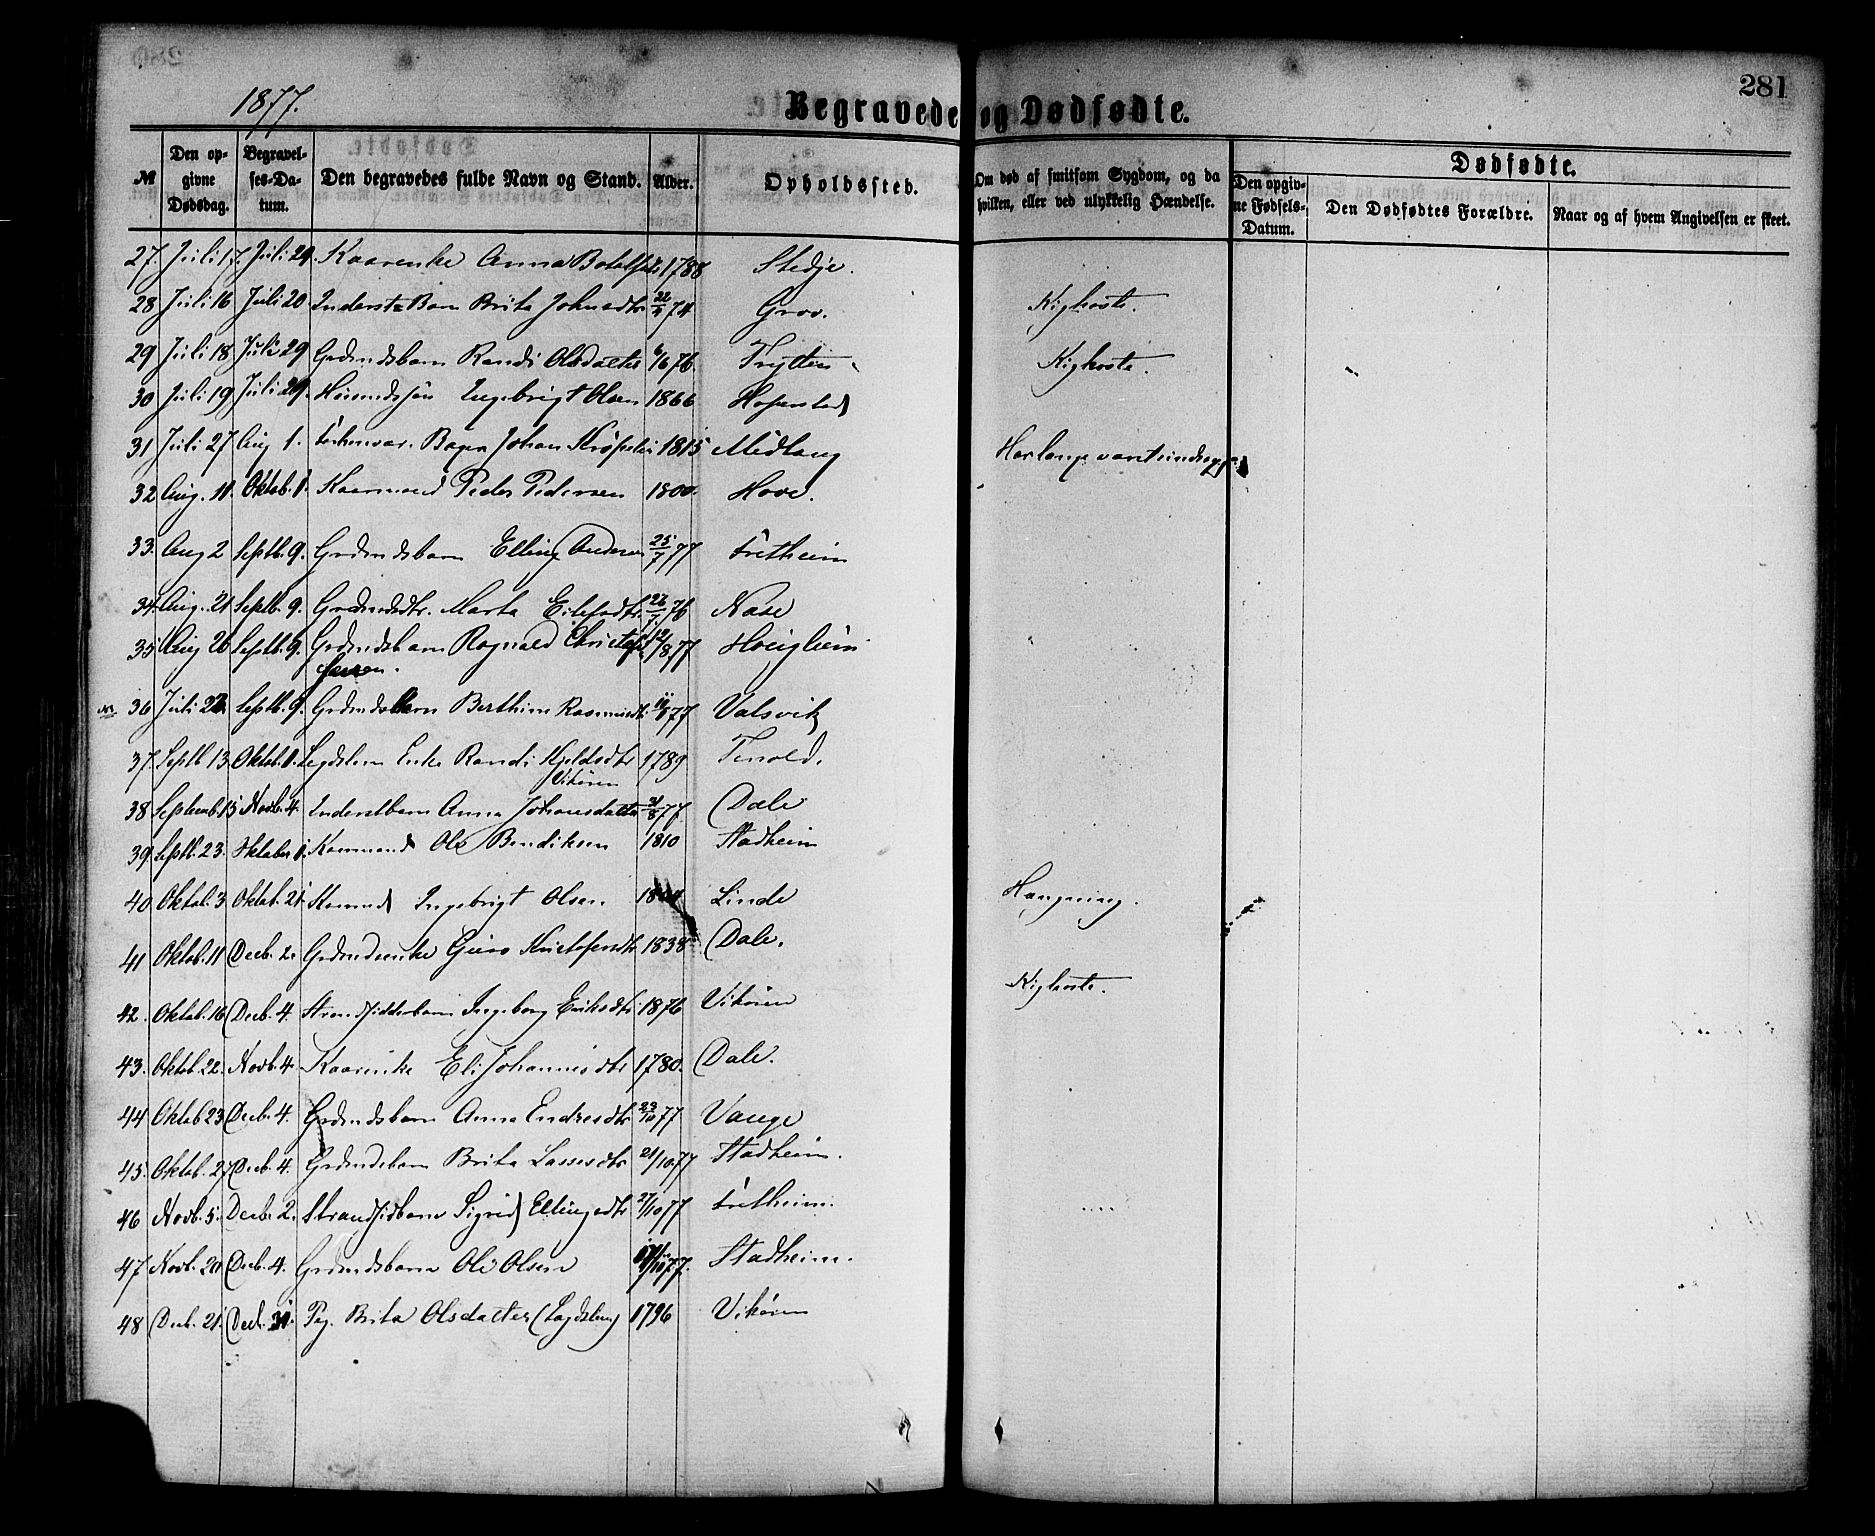 281
1877.
Begravede og Dødfødte.
№
Den opgivne Dødsdag.
Begravelses-Datum.
Den begravedes fulde Navn og Stand.
Alder.
Opholdssted.
Om død af smitsom Sygdom, og da hvilken, eller ved ulykkelig Hændelse.
Dødfødte.
Den opgivne Fødsels-Datum.
Den Dødfødtes Forældre.
Naar og af hvem Angivelsen er skeet.
27. Juli 17. Juli 29. Kaarenke Anna 1788 Stedje.
28 Juli 16 Juli 20. Inderst Barn Brita Johnsdtr 74 Grov. Kighoste.
29 Juli 18 Juli 29 Grdmdsbarn Randi Olsdatter 6/6 76. Trytten Kighoste.
30 Juli 19 Juli 29. Huusmdssøn Ingebrigt Olsen 1866 Hopersted
31 Juli 27. Aug 1. Johan 1815 Midlang
32 Aug. 11. Oktob. 1. Kaarmand Peder Pedersen 1800. Hove.
33. Aug 2 Septb. 9. Grdmdsbarn Elling Andersen 25/7 77 Fretheim
34. Aug. 21 Septb. 9. Grdmdsdtr. Marta 76 Nase
35 Aug 26 Septb. 9. Grdmdsbarn Ragnvald Christof 12/8 77 Hveigheim
fersen.
36 Juli 22. Septb. 9. Grdmdsbarn Berthine Rasmusdtr. 77 Valsvik
37. Septb 13. Oktob. 1. Legdslem Enke Randi Kjeldsdtr 1789 Tenold.
Vikøren
38 Septemb. 15 Novb. 4. Inderstbarn Anna Johansdatter 77. Dale
39. Septb. 23. Oktober 1. Kaarmand Ole Bendiksen 1810 Stadheim
40. Oktob. 3 Oktob. 21. Ingebrigt Olsen Linde Hængning.
41 Oktob. 11 Decb. 2. Grdmdsenke Guro Kristofersdtr. 1838 Dale.
42. Oktob. 16 Decb. 4. Strandsidderbarn Ingeborg Eriksdtr. 1876 Vikøren Kighoste.
43. Oktob. 22. Novb. 4. Kaarenke Eli Johannesdtr 1780. Dale.
44 Oktob 23 Decb. 4. Grdmdsbarn Anna Endresdtr 23/10 77 Vange
45. Oktob. 27 Decb. 4. Grdmdsbarn Brita Lassesdtr 21/10 77 Stadheim.
46 Novb. 5. Decb. 2. Strandsidbarn Sigrid Ellingsdtr 27/10 77 Fretheim.
47 Novb. 20 Decb. 4. Grdmdsbarn Ole Olsen 77. Stadheim.
48 Decb. 21. Decb. 31. Pig. Brita Olsdatter (Lægdslem) 1796 Vikøren